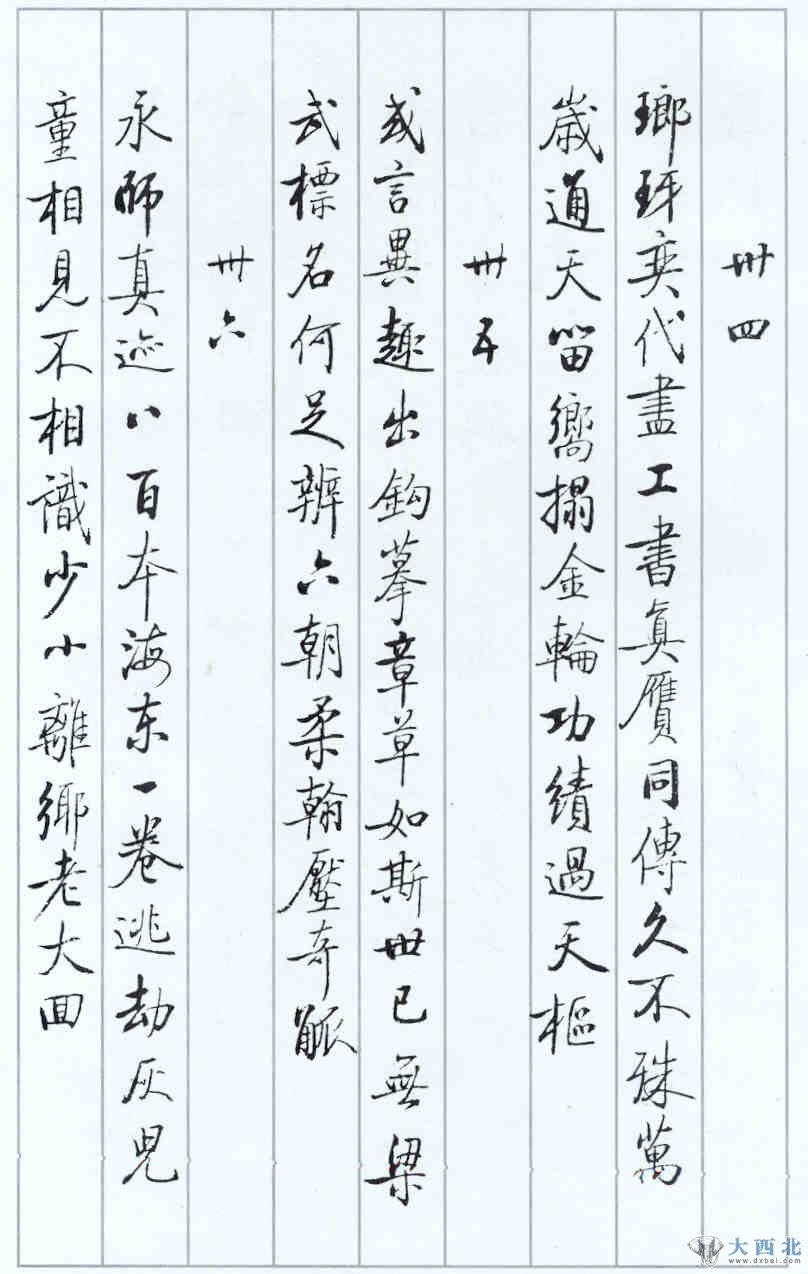 卅四
瑯琊奕代盡工書真贋同傳久不殊萬
歲通天留嚮搨金輪功績過天樞
卅五
或言異趣出鈎摹章草如斯世已無梁
武標名何足辨六朝柔翰壓奇觚
卅六
永師真迹八百本海东一卷逃劫灰兒
童相見不相識少小離鄉老大回
大西北
www.dxbei.com